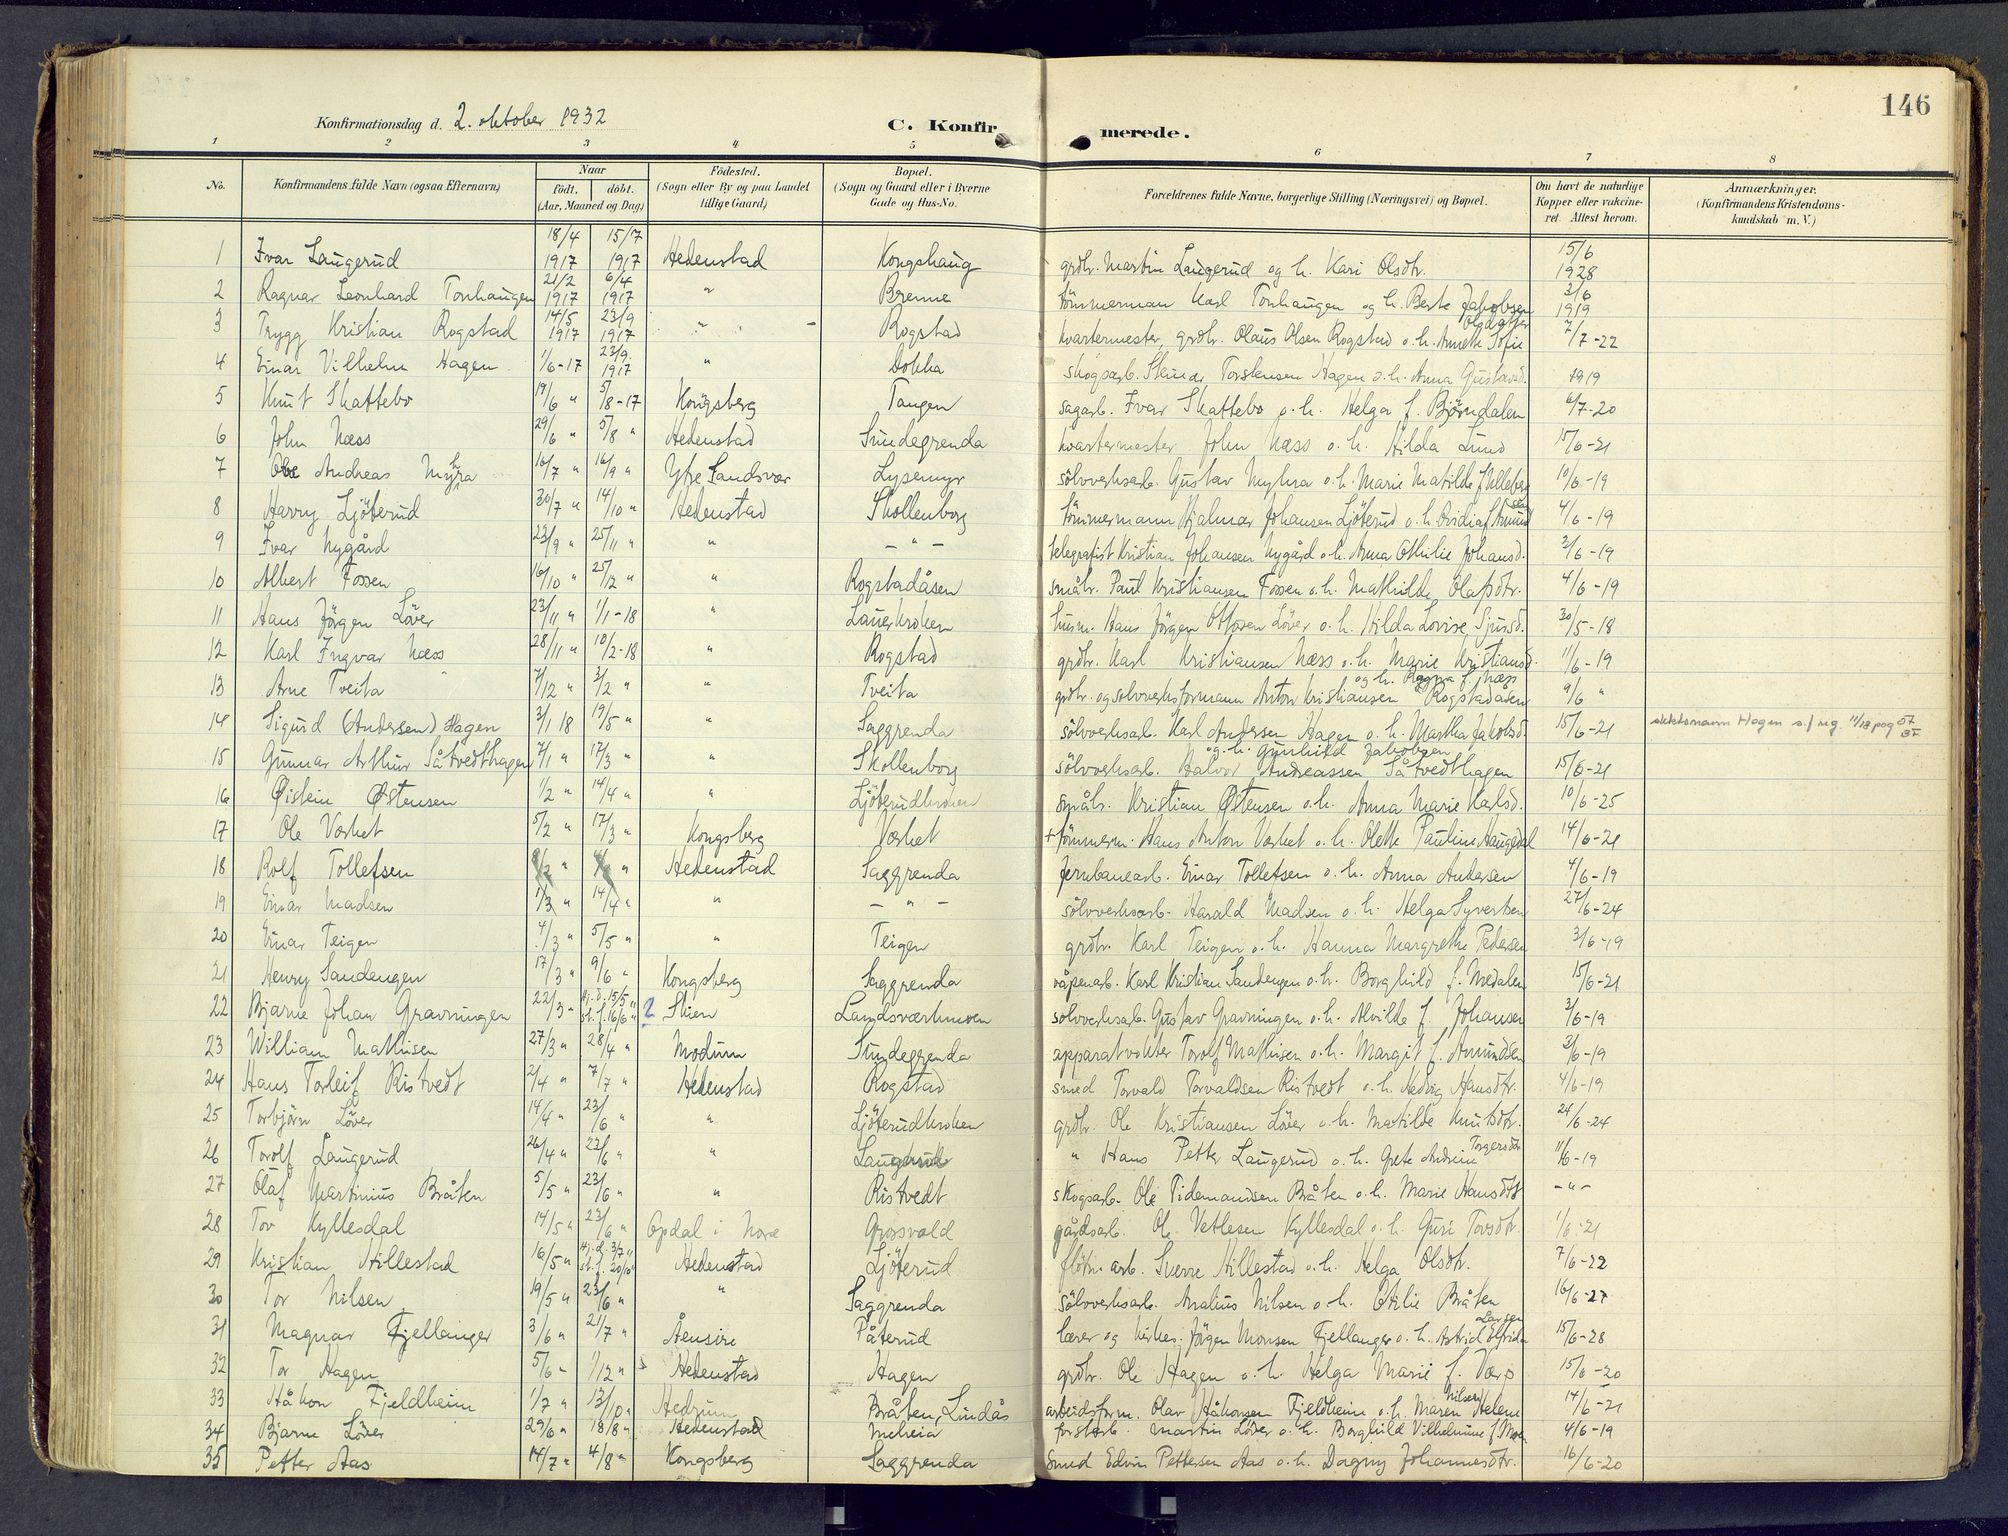 146
Konfirmationsdag d. 2. oktober 1932
C. Konfirmerede.
1 2 3 4 5 6 7 8
No.
Konfirmandens fulde Navn (ogsaa Efternavn)
Naar
födt. döbt.
(Aar, Maaned og Dag)
Födested.
(Sogn eller By og paa Landet
tillige Gaard)
Bopæl.
(Sogn og Gaard eller i Byerne
Gade og Hus-No.
Forældrenes fulde Navne, borgerlige Stilling (Næringsvei) og Bopæl.
Om havt de naturlige
Kopper eller vakcine-
ret. Attest herom.
Anmærkninger.
(Konfirmandens Kristendoms-
kundskab m. V.)
1 Ivar Laugerud 18/4 1917 15/7 1917 Hedenstad Kongshaug grdbr. Martin Laugerud og h. Kari Olsdtr. 15/6 1928
2 Ragnar Leonhard Tonhaugen 21/2 1917 6/4 1917 " Brenne tömmerman Karl Tonhaugen og h. Berte Jakobsen 3/6 1919
3 Trygg Kristian Rogstad 14/5 1917 23/9 1917 " Rogstad kvartermester, grdbr. Olaus Olsen Rogstad o.h. Annette Sofie Olsdatter 7/7-22
4 Einar Vilhelm Hagen 1/6-17 23/9 1917 " Dokka skogsarb. Steinar Torstensen Hagen o.h. Anna Gustavsd. 1919
5 Knut Skattebo 19/6 " 5/8-17 Kongsberg Tangen sagarb. Ivar Skattebo o.h. Helga f. Björndalen 6/7-20
6 John Næss 29/6 " 5/8 " Hedenstad Sundegrenda kvartermester John Næss o.h. Hilda Lund 15/6-21
7 Ole Andreas Myhra 16/7 " 16/9 " Ytre Sandsvær Lysemyr sölvverksarb. Gustav Myhra o.h. Marie Matilde f. Ulleberg 10/6-19
8 Harry Ljöterud 30/7 " 14/10 " Hedenstad Skollenborg tömmermann Hjalmar Johansen Ljöterud o.h. 4/6-19
9 Ivar Nygård 23/9 " 25/11 " " - " - telegrafist Kristian Johansen Nygård o.h. Anna Othilie Johansd. 3/6-19
10 Albert Fossen 16/10 " 25/12 " " Rogstadåsen småbr. Paul Kristiansen Fossen o.h. Mathilde Olafsdtr. 4/6-19
11 Hans Jörgen Löver 23/11 " 1/1-18 " Lauerkroken husm. Hans Jörgen Ottosen Löver o.h. Hilda Lovise 30/5-18
12 Karl Ingvar Næss 28/11 " 10/2-18 " Rogstad grdbr. Karl Kristiansen Næss o.h. Marie Kristiansd. 11/6-19
13 Arne Tveita 7/12 " 3/2 " " Tveita grdbr. og sölvverksformann Anton Kristiansen Rogstadåsen og h. Ragna f. Næss 9/6 "
14 Sigurd (Andersen) Hagen 3/1 18 19/5 " " Saggrenda sölvverksarb. Karl Andersen Hagen o.h. Martha Jakobsd. 15/6-21 slektsnavn Hagen
15 Gunnar Arthur Såtvedthagen 7/1 " 17/3 " " Skollenborg sölvverksarb. Halvor Andreassen Såtvedthagen og h. Gunhild Jakobsen 15/6-21
16 Øistein Østensen 1/2 " 14/4 " " Ljöterudkroken småbr. Kristian Østensen o.h. Anna Marie Karlsd. 10/6-25
17 Ole Værket 5/2 " 17/3 " Kongsberg Værket + tömmerm. Hans Anton Værket o.h. Olette Pauline Haugedal 14/6-21
18 Rolf Tollefsen Hedenstad Saggrenda Jernbanearb. Einar Tollefsen o.h. Anna Andersen 4/6-19
19 Einar Madsen 1/3 " 14/4 " " - " - sölvverksarb. Harald Madsen o.h. Helga Syvertsen 27/6-24
20 Einar Teigen 4/3 " 5/5 " " Teigen grdbr. Karl Teigen o.h. Hanna Margrethe Pedersen 3/6-19
21 Henry Sandengen 17/3 " 9/6 " Kongsberg Saggrenda våpenarb. Karl Kristian Sandengen o.h. Borghild f. Medalen 15/6-21
22 Bjarne Johan Gravningen 22/3 " hj.d. 15/5 " st.f. 16/6 " ? Skien Landsværkmoen sölvverksarb. Gustav Gravningen o.h. Alvilde f. Johansen 3/6-19
23 William Mathisen 27/3 " 28/4 " Modum Sundegrenda apparatvokter Torolf Mathisen o.h. Margit f. Amundsen 3/6-19
24 Hans Torleif Ristvedt 2/4 " 7/7 " Hedenstad Rogstad smed Torvald Torvaldsen Ristvedt o.h. Hedvig Hansdtr. 4/6-19
25 Torbjörn Löver 14/4 " 23/6 " " Ljöterudkroken grdbr. Ole Kristiansen Löver o.h. Matilde Knutsdtr. 24/6-24
26 Torolf Laugerud 26/4 " 23/6 " " Laugerud " Hans Petter Laugerud o.h. Grete Andrine Torgersdtr 11/6-19
27 Olaf Martinius Bråten 5/5 " 23/6 " " Ristvedt skogsarb. Ole Tidemandsen Bråten o.h. Marie Hansdtr - " -
28 Tov Kyllesdal 14/5 " 23/6 " Opdal i Nore Grosvold gårdsarb. Ole Vetlesen Kyllesdal o.h. Guri Tovsdtr. 1/6-21
29 Kristian Hillestad 16/5 " hj.d. 3/7 " st.f. 20/10 " Hedenstad Ljöterud flötn. arb. Sverre Hillestad o.h. Helga Olsdtr. 7/6-22
30 Tor Nilsen 19/5 " 23/6 " " Saggrenda sölvverksarb. Analius Nilsen o.h. Otilie Bråten 16/6-27
31 Magnar Fjellanger 3/6 " 21/7 " Åensire Påterud lærer og kirkes. Jörgen Monsen Fjellanger o.h. Astrid Elfrida Larsen 15/6-28
32 Tor Hagen 5/6 " 1/12 " Hedenstad Hagen grdbr. Ole Hagen o.h. Helga Marie f. Værp 15/6-20
33 Håkon Fjeldheim 1/7 " 13/10 " Hedrum Bråten, Lindås arbeidsform. Olav Håkonsen Fjeldheim o.h. Maren Helene Nilsen 14/6-21
34 Bjarne Löver 29/6 " 18/8 " Hedenstad Meheia forstarb. Martin Löver o.h. Borghild Vilhelmine f. Moen 4/6-19
35 Petter Aas 14/7 " 4/8 " Kongsberg Saggrenda Smed Edvin Pettersen Aas o.h. Dagny Johannesdtr. 16/6-20